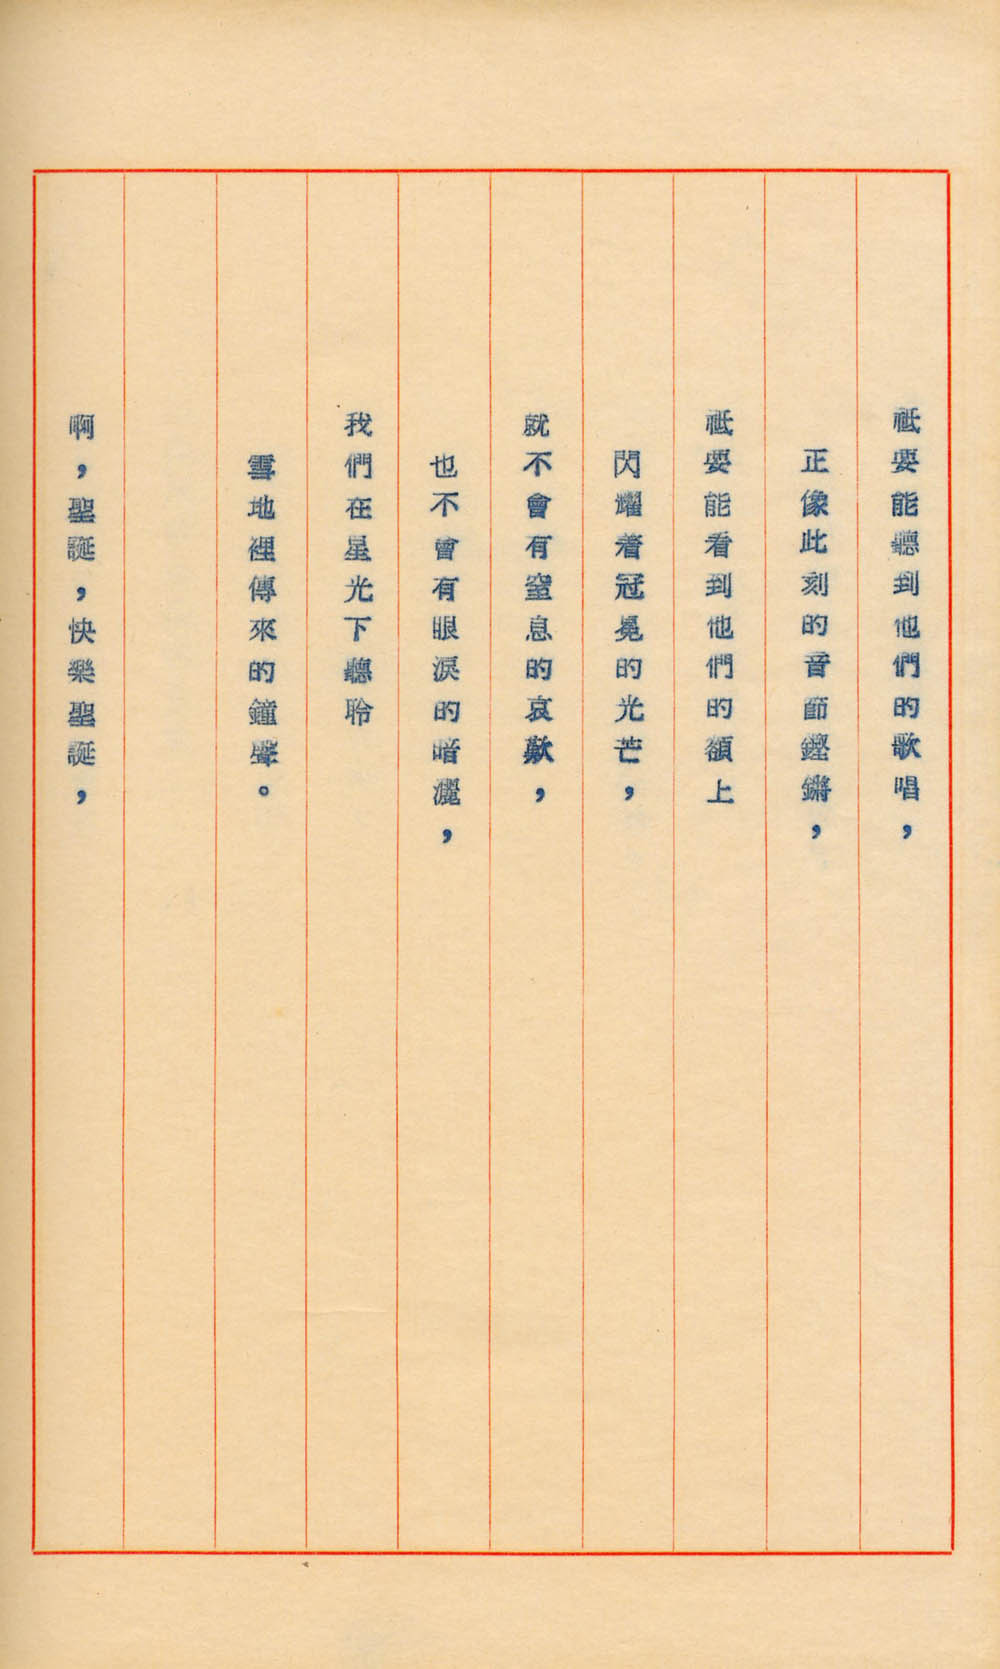 祗要能聽到他們的歌唱，
正像此刻的音節鏗鏘，
祗要能看到他們的額上
閃耀着冠冕的光芒，
就不會有窒息的哀歎，
也不會有眼淚的暗灑，
我們在星光下聽聆
雪地裡傳來的鐘聲。
啊，聖誕，快樂聖誕，